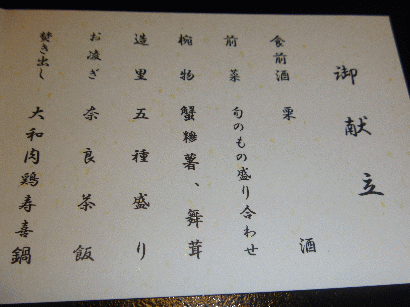 御献立
食前酒 栗酒
前菜 旬のもの盛り合わせ
椀物 蟹糝薯、舞茸
造里 五種盛り
お凌ぎ 奈良茶飯
焚き出し 大和肉鶏寿喜鍋